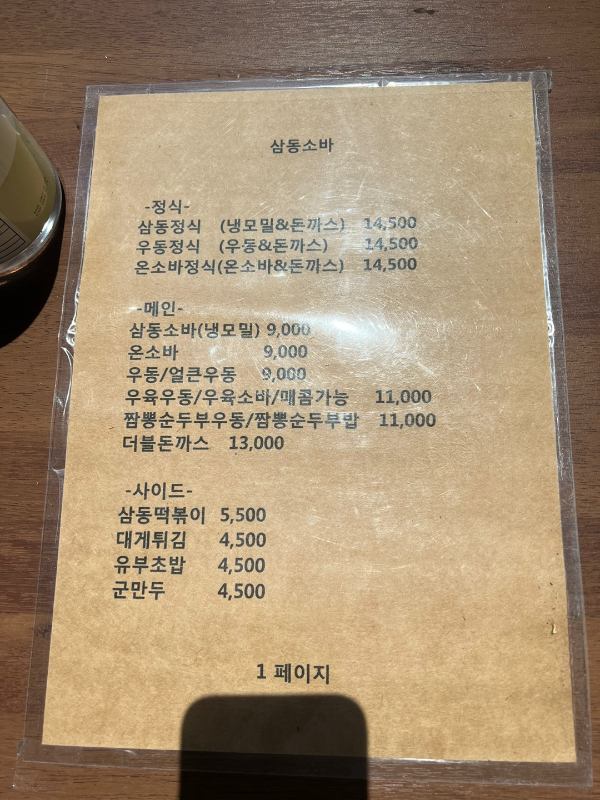 삼동소바
-정식-
삼동정식 (냉모밀&돈까스) 14,500
우동정식 (우동&돈까스) 14,500
온소바정식(온소바&돈까스) 14,500
-메인-
삼동소바(냉모밀) 9,000
온소바 9,000
우동/얼큰우동 9,000
우육우동/우육소바/매콤가능 11,000
짬뽕순두부우동/짬뽕순두부밥 11,000
더블돈까스 13,000
-사이드-
삼동떡볶이 5,500
대게튀김 4,500
유부초밥 4,500
군만두 4,500
1 페이지